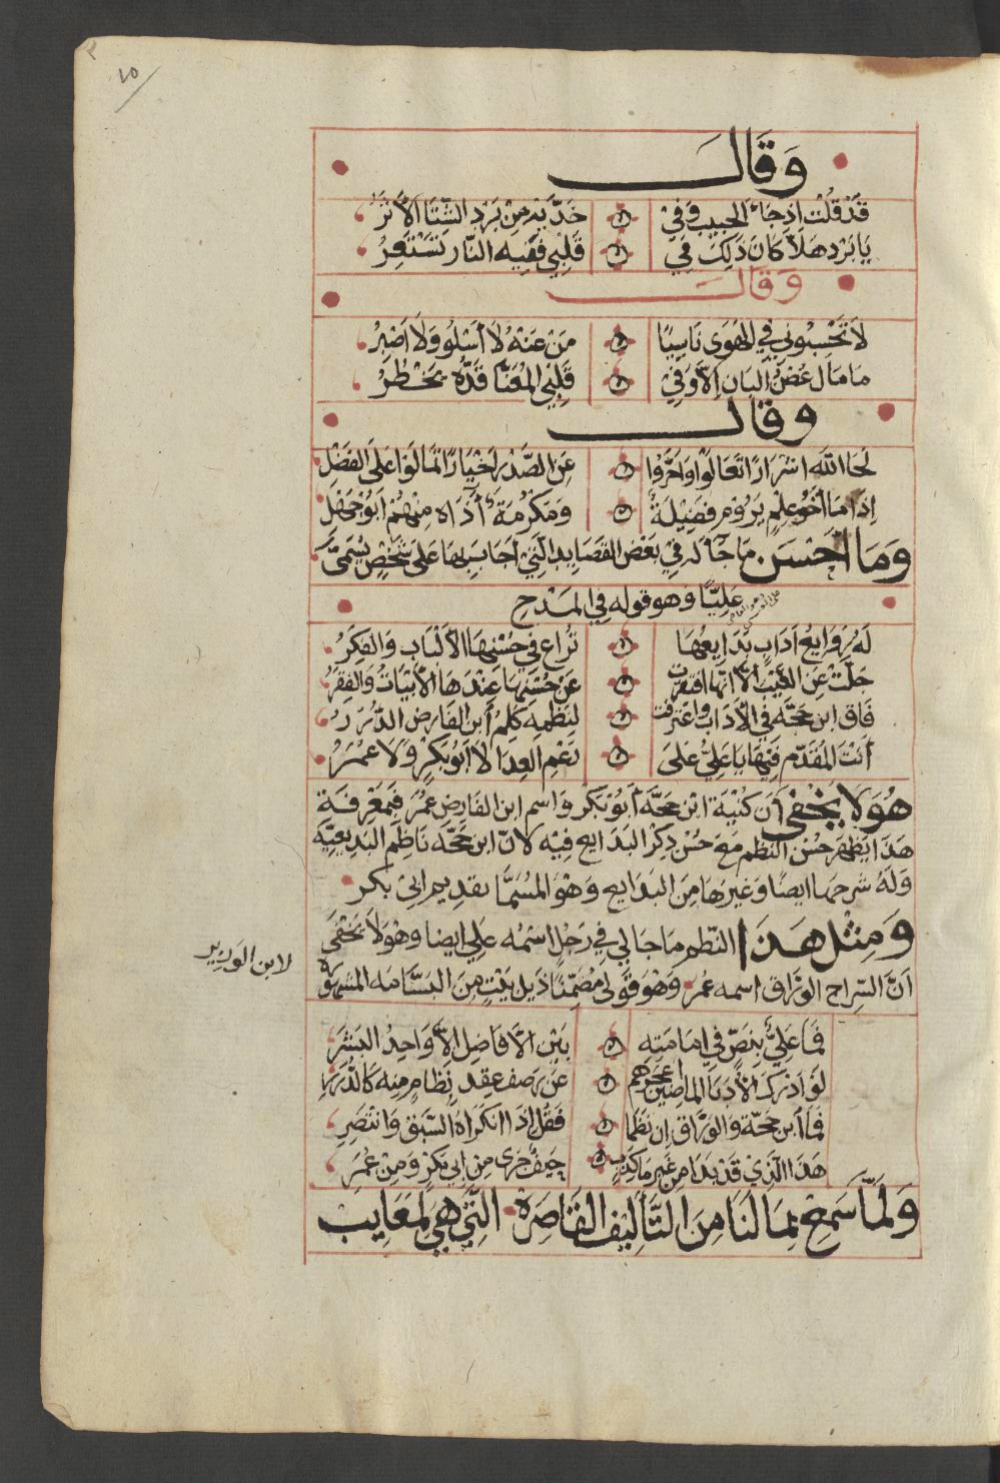 ١٥
وَقَالَ
قَدْ قُلْتُ اِذ جَاءَ الحَبيب وَفي خَدَّيْهِ مِنْ بَرْدِ الشِّتَا الأَثَرُ
يَا بَرْد هَلاَّ كَانَ ذَلِكَ فِي قَلْبِي فَفِيه النَّار تَسْتَعِرُ
وَقَالَ
لاَ تَحْسِبُوني في الهَوَى نَاسِيًا مَنْ عَنْهُ لاَ أَسْلُو وَلاَ اَصْبِرُ
مَا مَال غصْنُ البَانِ إِلاَّ وَفي قَلْبِي المُعَنَّا قَدُّه يَخْطُرُ
وقال
لَحَا اللّه اشْرَارًا تَعَالَوْا وَاخَّرُوا عَنِ الصَّدْرِ اَخْيَارًا تَمَالَوَا عَلَى الفَضْلِ
اِذَا مَا أَخُو عِلْمٍ يَرُوْم فَضِيْلَةً وَمَكْرُمَةً أذَاه مِنْهُمُ أَبُو جَهْلِ
وَمَا اَحْسَن مَا جَاءَ له فِي بَعْض القَصَايِد الَّتِي اَجَابَ بِهَا عَلَى شَخْصٍ يُسَمَّى
عَلِيًّا وَهو قوله فِي المَدْحِ
لَهُ رَوَايِعُ آدَابٍ بَدَايِعُهَا تُرَاع فِي حُسْنِهَا الأَلْبَاب وَالفِكَرُ
جَلَّتْ عَنِ العَيْب الاّ انّها افتقرت عَنْ حُسْنِهَا عِنْدَهَا الأَبْيَاتُ وَالفِقَرُ
فَاق ابن حَجَّه فِي الآدَاب وَاعترفت لِنَظْمِهِ كَلِمُ ابن الفَارض الدُّرَرُ
أَنْتَ المُقَدَّم فِيْهَا يَا عَلِيُّ عَلَى رَغْمِ العِدَا لاَ أَبُو بَكْرٍ وَلاَ عُمَرُ
هُوَ لاَ يَخْفَى أَنّ كُنْيَة ابْن حَجَّه أَبُو بَكْر وَاسم ابن الفَارِض عُمَرُ فَبِمَعْرِفَة
هَذَا يَظْهَر حُسْن النَّظم مَعَ حُسْن ذِكْرِ البَدَايع فِيْه لأَنّ ابن حَجَّه نَاظِم البَدِيعيّه
وَلَهُ شرحها ايضًا وَغَيْرهَا مِنَ البَدَايع وَهْوَ المُسَمَّا بتقديم ابي بكر
وَمِثْل هَذَا النّظم مَا جَا لي في رَجُل اسْمُه علي ايضا وهُوَ لاَ يَخْفَى
أَنَّ السِّراج الورَّاق اسمه عُمَر وَهْوَ قَوْلي مُضَمِّنًا ذَيل بَيْتٍ مِنَ البَسَّامَه المَشهورَة
لابن الوردير
فَمَا عَلِيٌّ بِنَصٍّ فِي اِمَامَتِه بَيْنَ الأَفَاضِل اِلاَّ وَاحِدُ البَشَرِ
لَوْ اَدْرَكَ الأُدَبَا المَاضِين اعجزهم عَنْ رَصف عِقْدِ نِظَامٍ مِنه كَالدُّرَرِ
فَمَا ابن حَجَّة وَالوَرَّاق اِن نَظَمَا فَقُل اِذَا انكَرَاهُ السَّبْق وَانْتَصِرِ
هَذَا الَّذِي قَدْ بَدَا مِنْ غَيرِ مَا كَذِب حَيْفٌ جَرَى مِن ابي بَكْرٍ وَمِنْ عُمَرِ
وَلَمَّا سَمحَ بِمَا لَنَا مِنَ التَّآلِيف القَاصِرَة الَّتِي هِيَ لِمَعَايِب